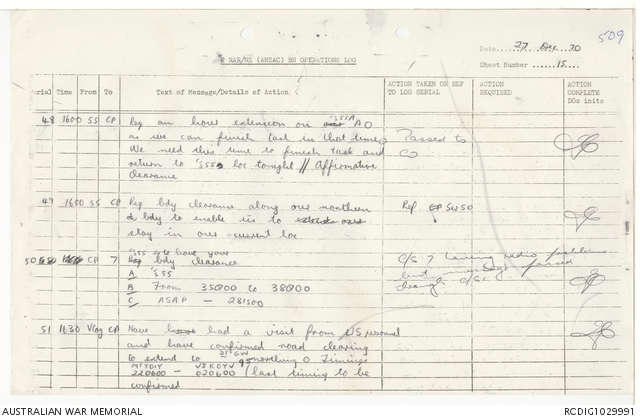 509
2 RAR/NZ (ANZAC) BN OPERATIONS LOG
Date 27 Dec 70
Sheet Number 15
Serial Time From To Text of Message/Details of Action ACTION TAKEN OR REF TO LOG SERIAL ACTION REQUIRED ACTION COMPLETE DOs inits
48 1600 S5 CP Req an hours extension on S55A AO
as we can finish task in that time. Passed to
We need this time to finish task and CO
return to S55 loc tonight // Affirmative
Clearance
49 1600 S5 CP Req bdy clearance along our northern Ref SW50
bdy to enable us to
stay in our current loc
50 CP 7 S55 to have your C/S 7 having radio problems
bdy clearance but message passed
A S55 through C/S
B From 350200 to 380200
C ASAP - 281500
51 1630 CP Have had a visit from US
and have confirmed road clearing
to extend to 95 northing Timings
220600 - 020600 (last timing to be
confirmed
AUSTRALIAN WAR MEMORIAL RCDIG1029991